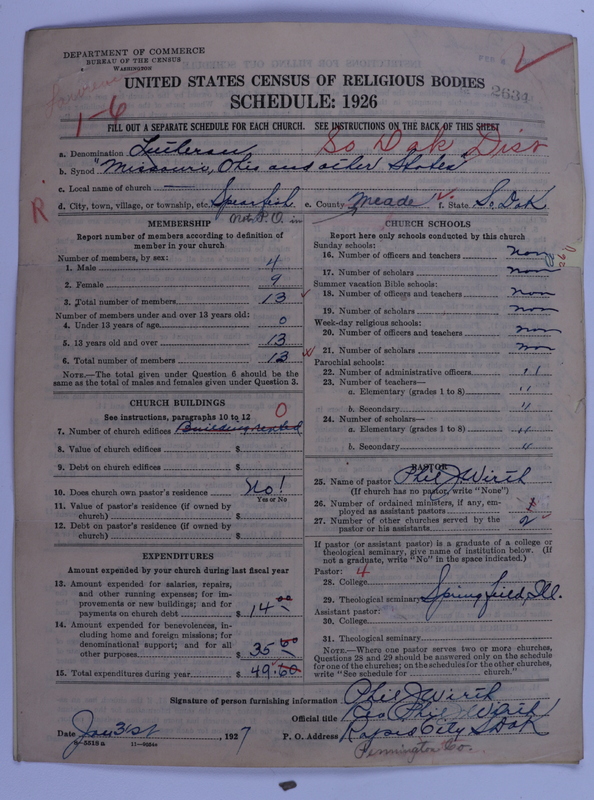 DEPARTMENT OF COMMERCE
BUREAU OF THE CENSUS
WASHINGTON
UNITED STATES CENSUS OF RELIGIOUS BODIES
SCHEDULE: 1926
2634
1-6
FILL OUT A SEPARATE SCHEDULE FOR EACH CHURCH. SEE INSTRUCTIONS ON THE BACK OF THIS SHEET
So Dak Dist
a. Denomination Lutheran
b. Synod "Missouri, Ohio and other States"
c. Local name of church
d. City, town, village, or township, etc. Spearfish e. County Meade f. State So. Dak
Not P.O. in
R
MEMBERSHIP
Report number of members according to definition of
member in your church
Number of members, by sex:
1. Male 4
2. Female 9
3. Total number of members 13
Number of members under and over 13 years old:
4. Under 13 years of age 0
5. 13 years old and over 13
6. Total number of members 13
NOTE.—The total given under Question 6 should be the
same as the total of males and females given under Question 3.
CHURCH BUILDINGS
See instructions, paragraphs 10 to 12
0
7. Number of church edifices Building rented
8. Value of church edifices $
9. Debt on church edifices $
10. Does church own pastor's residence No!
Yes or No
11. Value of pastor's residence (if owned by
church) $
12. Debt on pastor's residence (if owned by
church) $
EXPENDITURES
Amount expended by your church during last fiscal year
13. Amount expended for salaries, repairs,
and other running expenses; for im-
provements or new buildings; and for
payments on church debt $ 14.00
14. Amount expended for benevolences, in-
cluding home and foreign missions; for
denominational support; and for all
other purposes $ 35.60
15. Total expenditures during year $ 49.60
CHURCH SCHOOLS
Report here only schools conducted by this church
Sunday schools:
16. Number of officers and teachers non
17. Number of scholars non
Summer vacation Bible schools:
18. Number of officers and teachers non
19. Number of scholars non
Week-day religious schools:
20. Number of officers and teachers non
21. Number of scholars non
Parochial schools:
22. Number of administrative officers "
23. Number of teachers—
a. Elementary (grades 1 to 8) "
b. Secondary "
24. Number of scholars—
a. Elementary (grades 1 to 8) "
b. Secondary "
PASTOR
25. Name of pastor Phil J Wirth
(If church has no pastor, write "None")
26. Number of ordained ministers, if any, em-
ployed as assistant pastors
27. Number of other churches served by the
pastor or his assistants 2
If pastor (or assistant pastor) is a graduate of a college or
theological seminary, give name of institution below. (If
not a graduate, write "No" in the space indicated.)
Pastor: 4
28. College
29. Theological seminary Springfield, Ill.
Assistant pastor:
30. College
31. Theological seminary
NOTE.—Where one pastor serves two or more churches,
Questions 28 and 29 should be answered only on the schedule
for one of the churches; on the schedules for the other churches,
write "See schedule for church."
Signature of person furnishing information Phil J Wirth
Official title Rev Phil J Wirth
Date Jan 31st, 1927 P. O. Address Rapid City S Dak
Pennington Co.